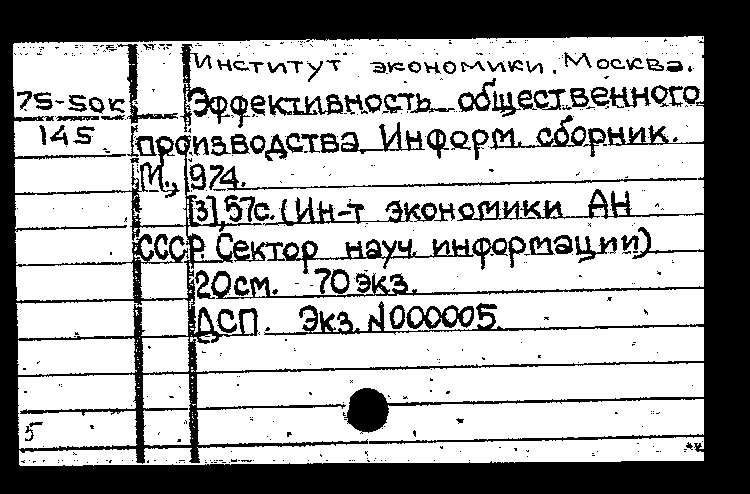 Институт экономики. Москва.
75-50к Эффективность общественного
145 производства. Информ. сборник.
М., 974.
[3],57с. (Ин-т экономики АН
СССР. Сектор науч. информации)
20см. 70экз.
ДСП. Экз. №000005.
5